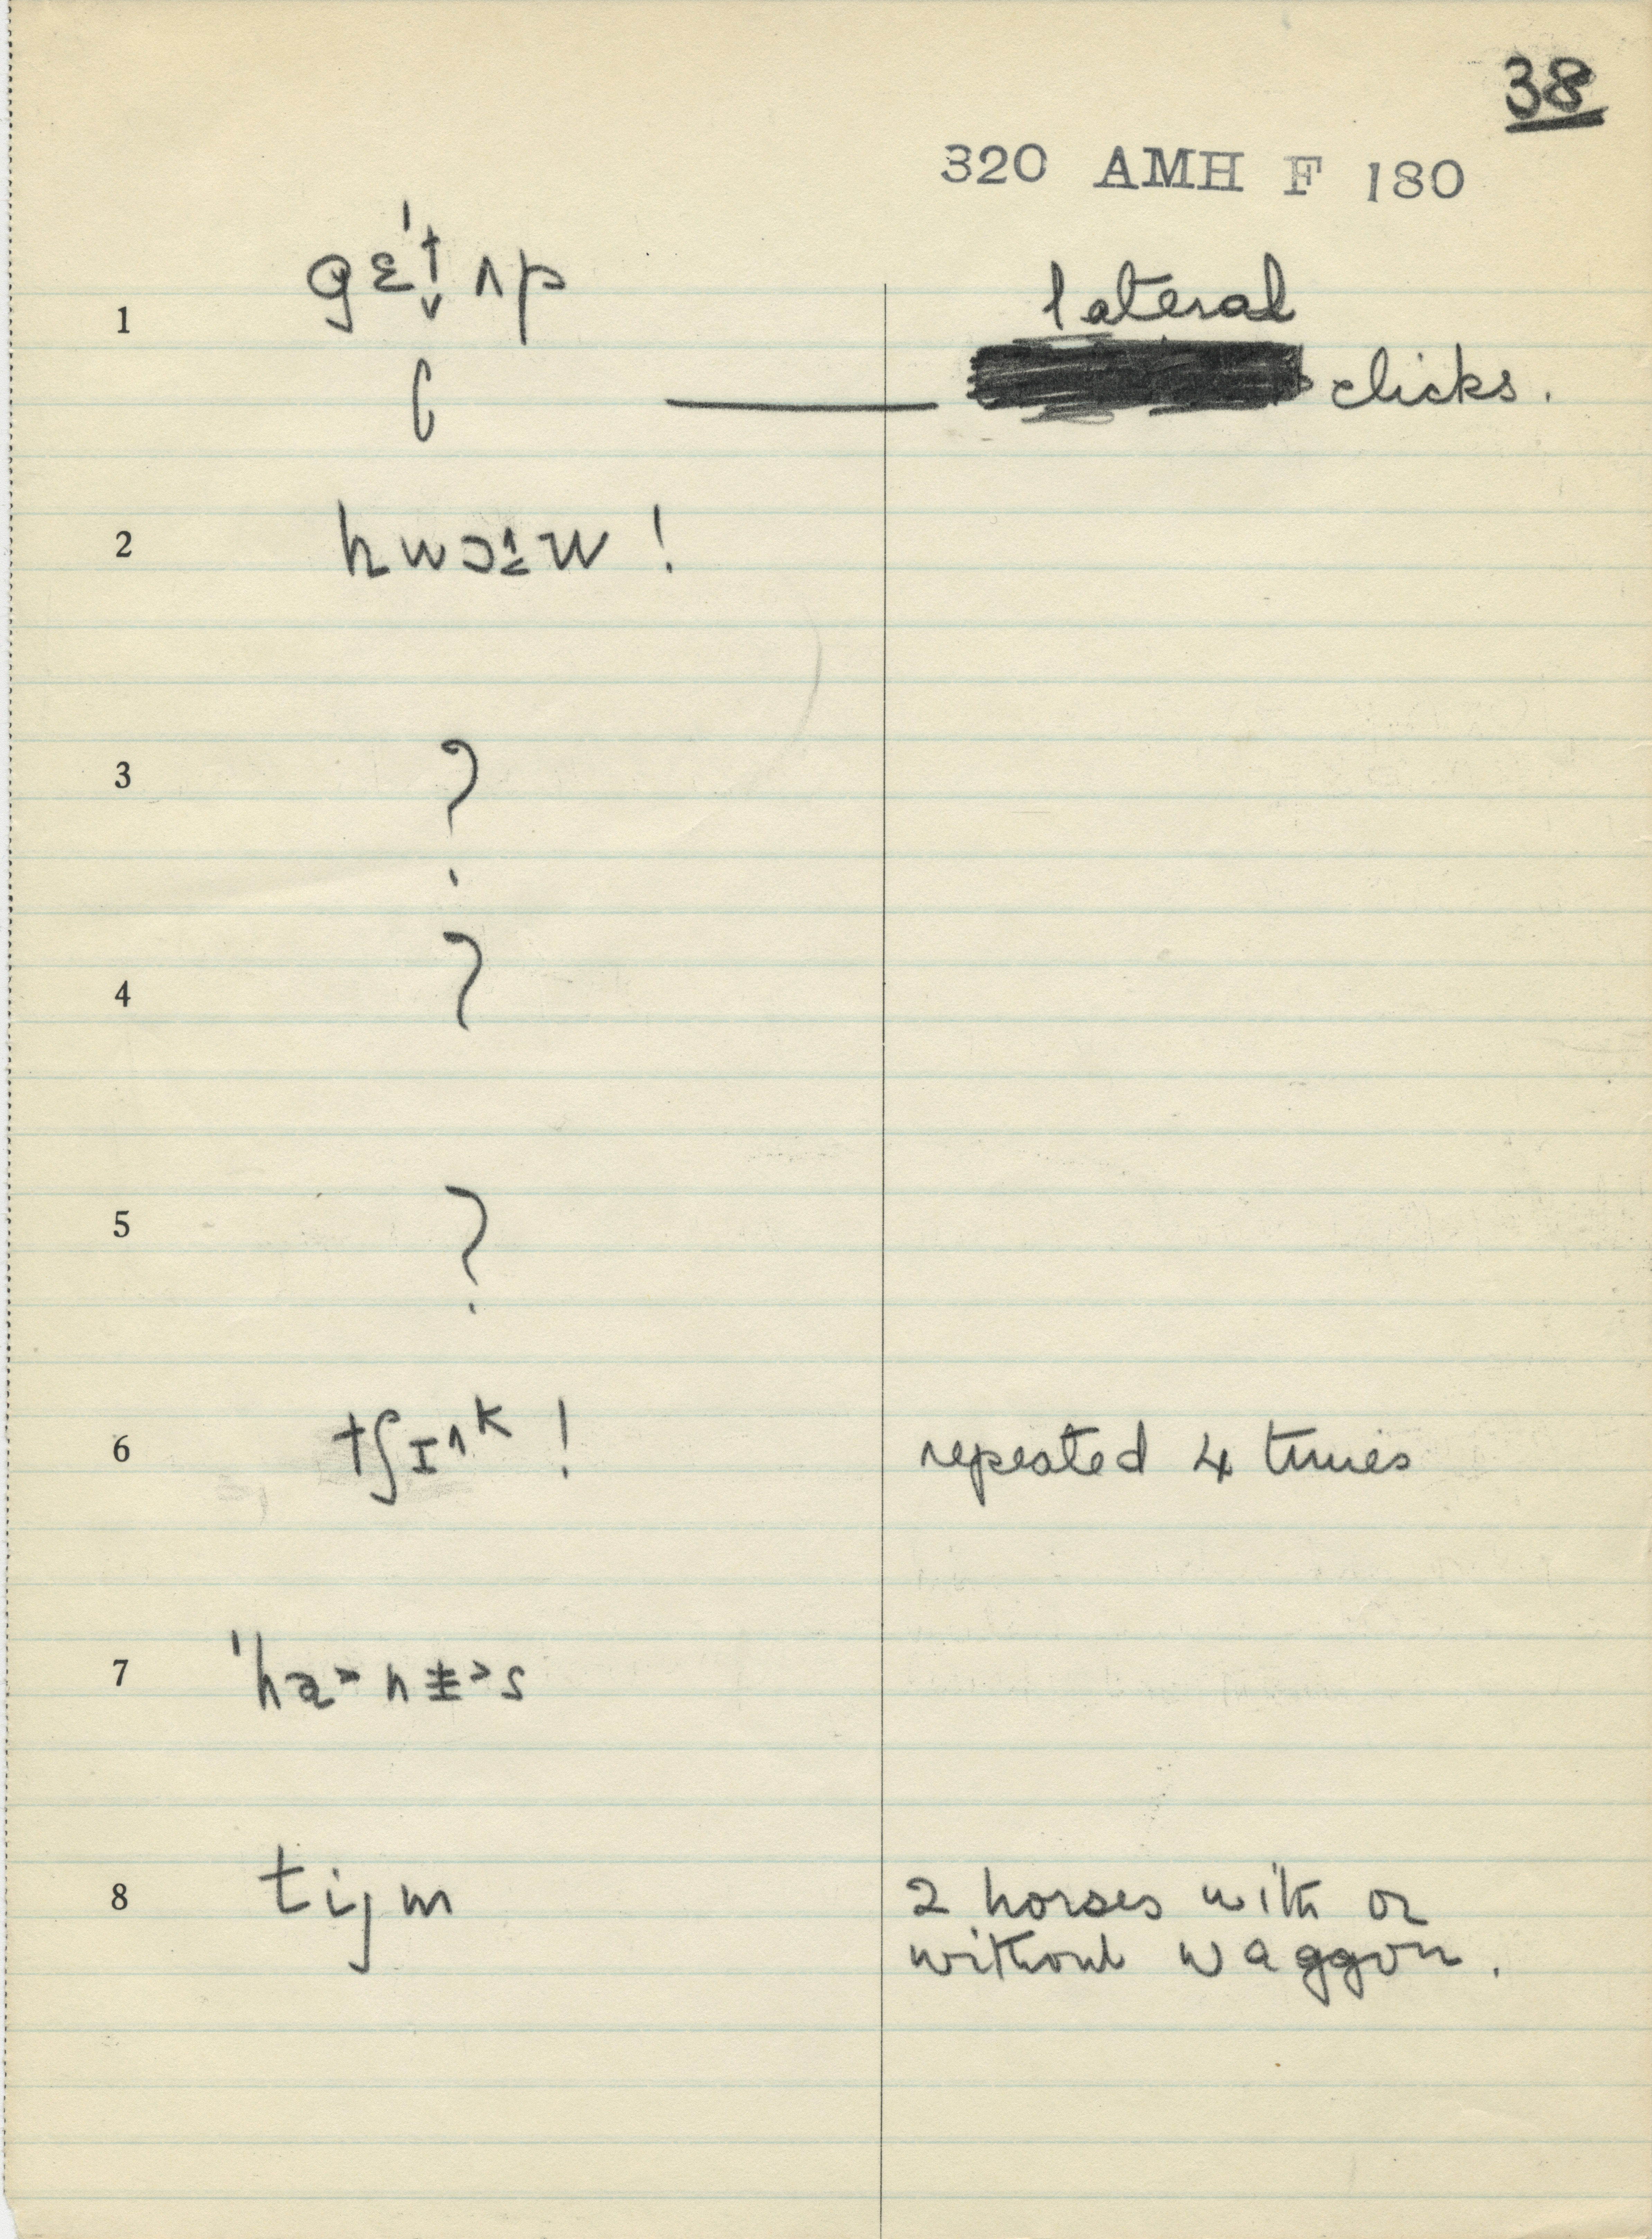 38
320 AMH F 180
1 gɛˈt̬ ʌp lateral
ʗ — clicks.
2 hwɔ˔w !
3 ?
4 ?
5 ?
6 tʃɪ^k ! repeated 4 times
7
8 tijm 2 horses with or
without waggon.